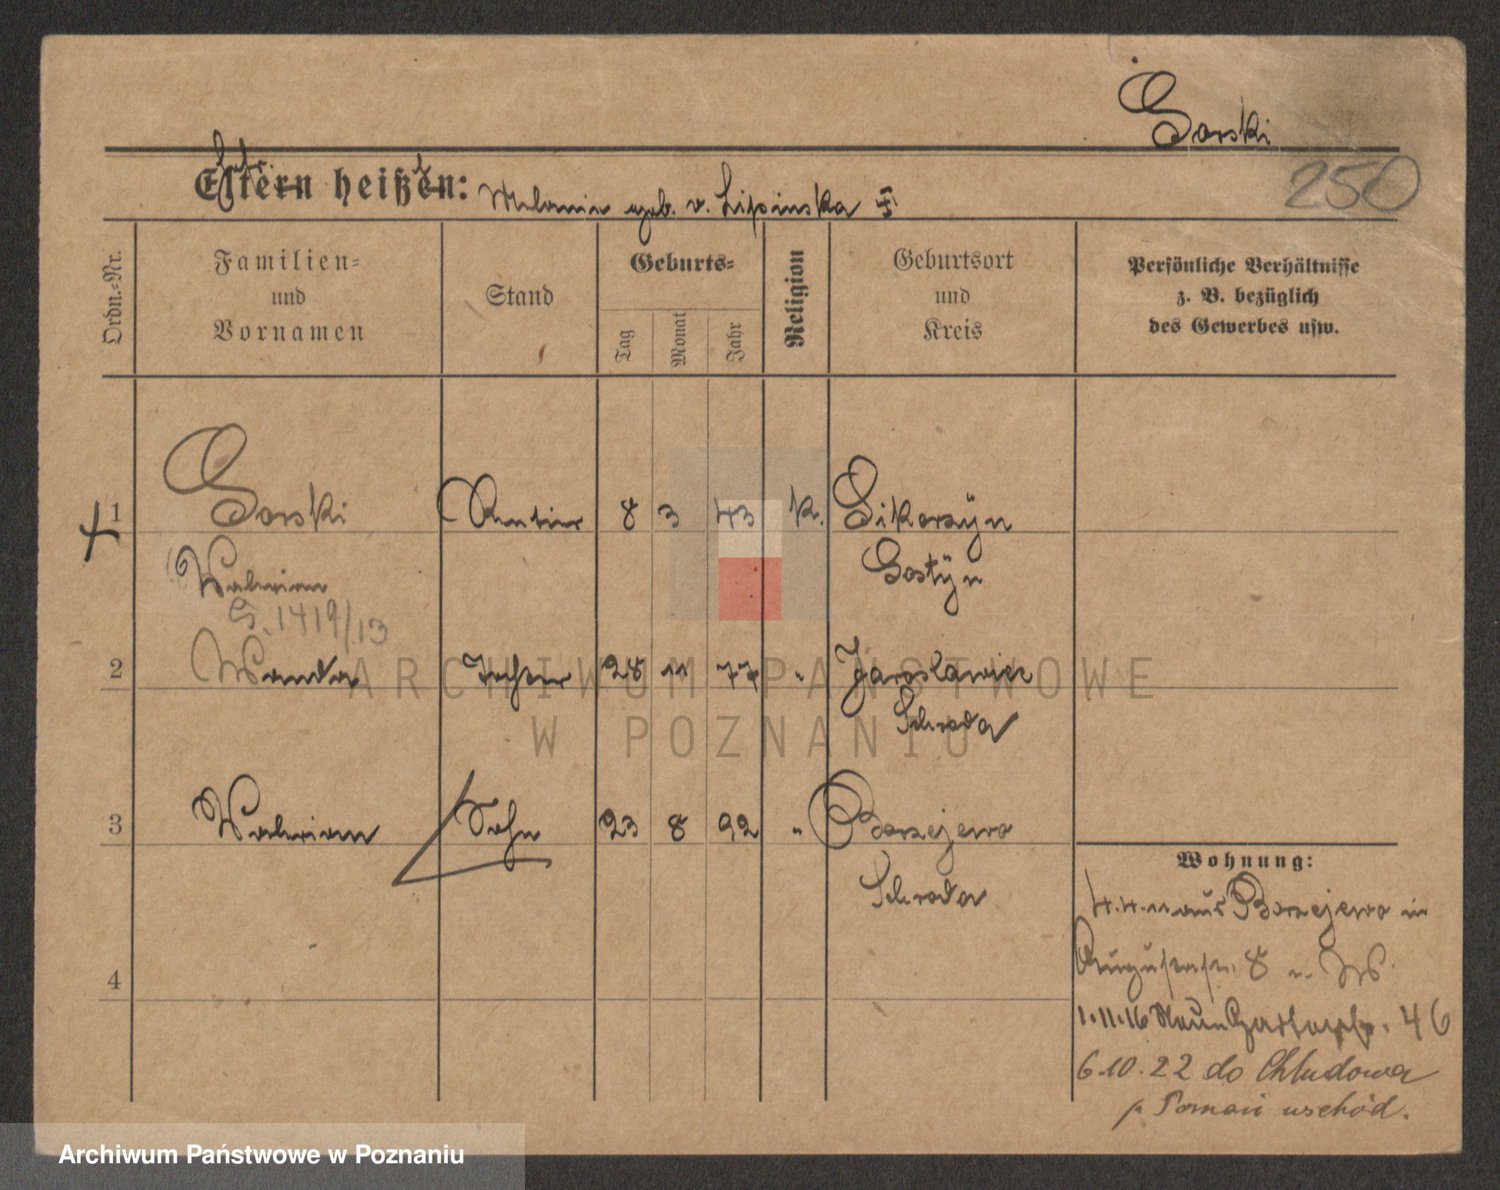 Gorski
Eltern heißen: Melanie geb. v. Lipinska
250
Ordn.-Nr.
Familien-
und
Vornamen
Stand
Geburts-
Tag
Monat
Jahr
Religion
Geburtsort
und
Kreis
Persönliche Verhältnisse
z. B. bezüglich
des Gewerbes usw.
1 Gorski Rentier 8 3 43 k. Sikorzyn
Gostyn
Walerian
G. 1419/13
2 Wanda Tochter 28 11 77 " Jaroslawiec
Schroda
3 Walerian Sohn 23 8 92 " Barzejewo
Schroda
4
Wohnung:
4.4.11 aus Barzejewo in
Augustastr. 8 v. W.
1.11.16 Neue Gartenstr. 46
6.10.22 do Chludowa
p. Poznań wschód.
ARCHIWUM PAŃSTWOWE
W POZNANIU
Archiwum Państwowe w Poznaniu